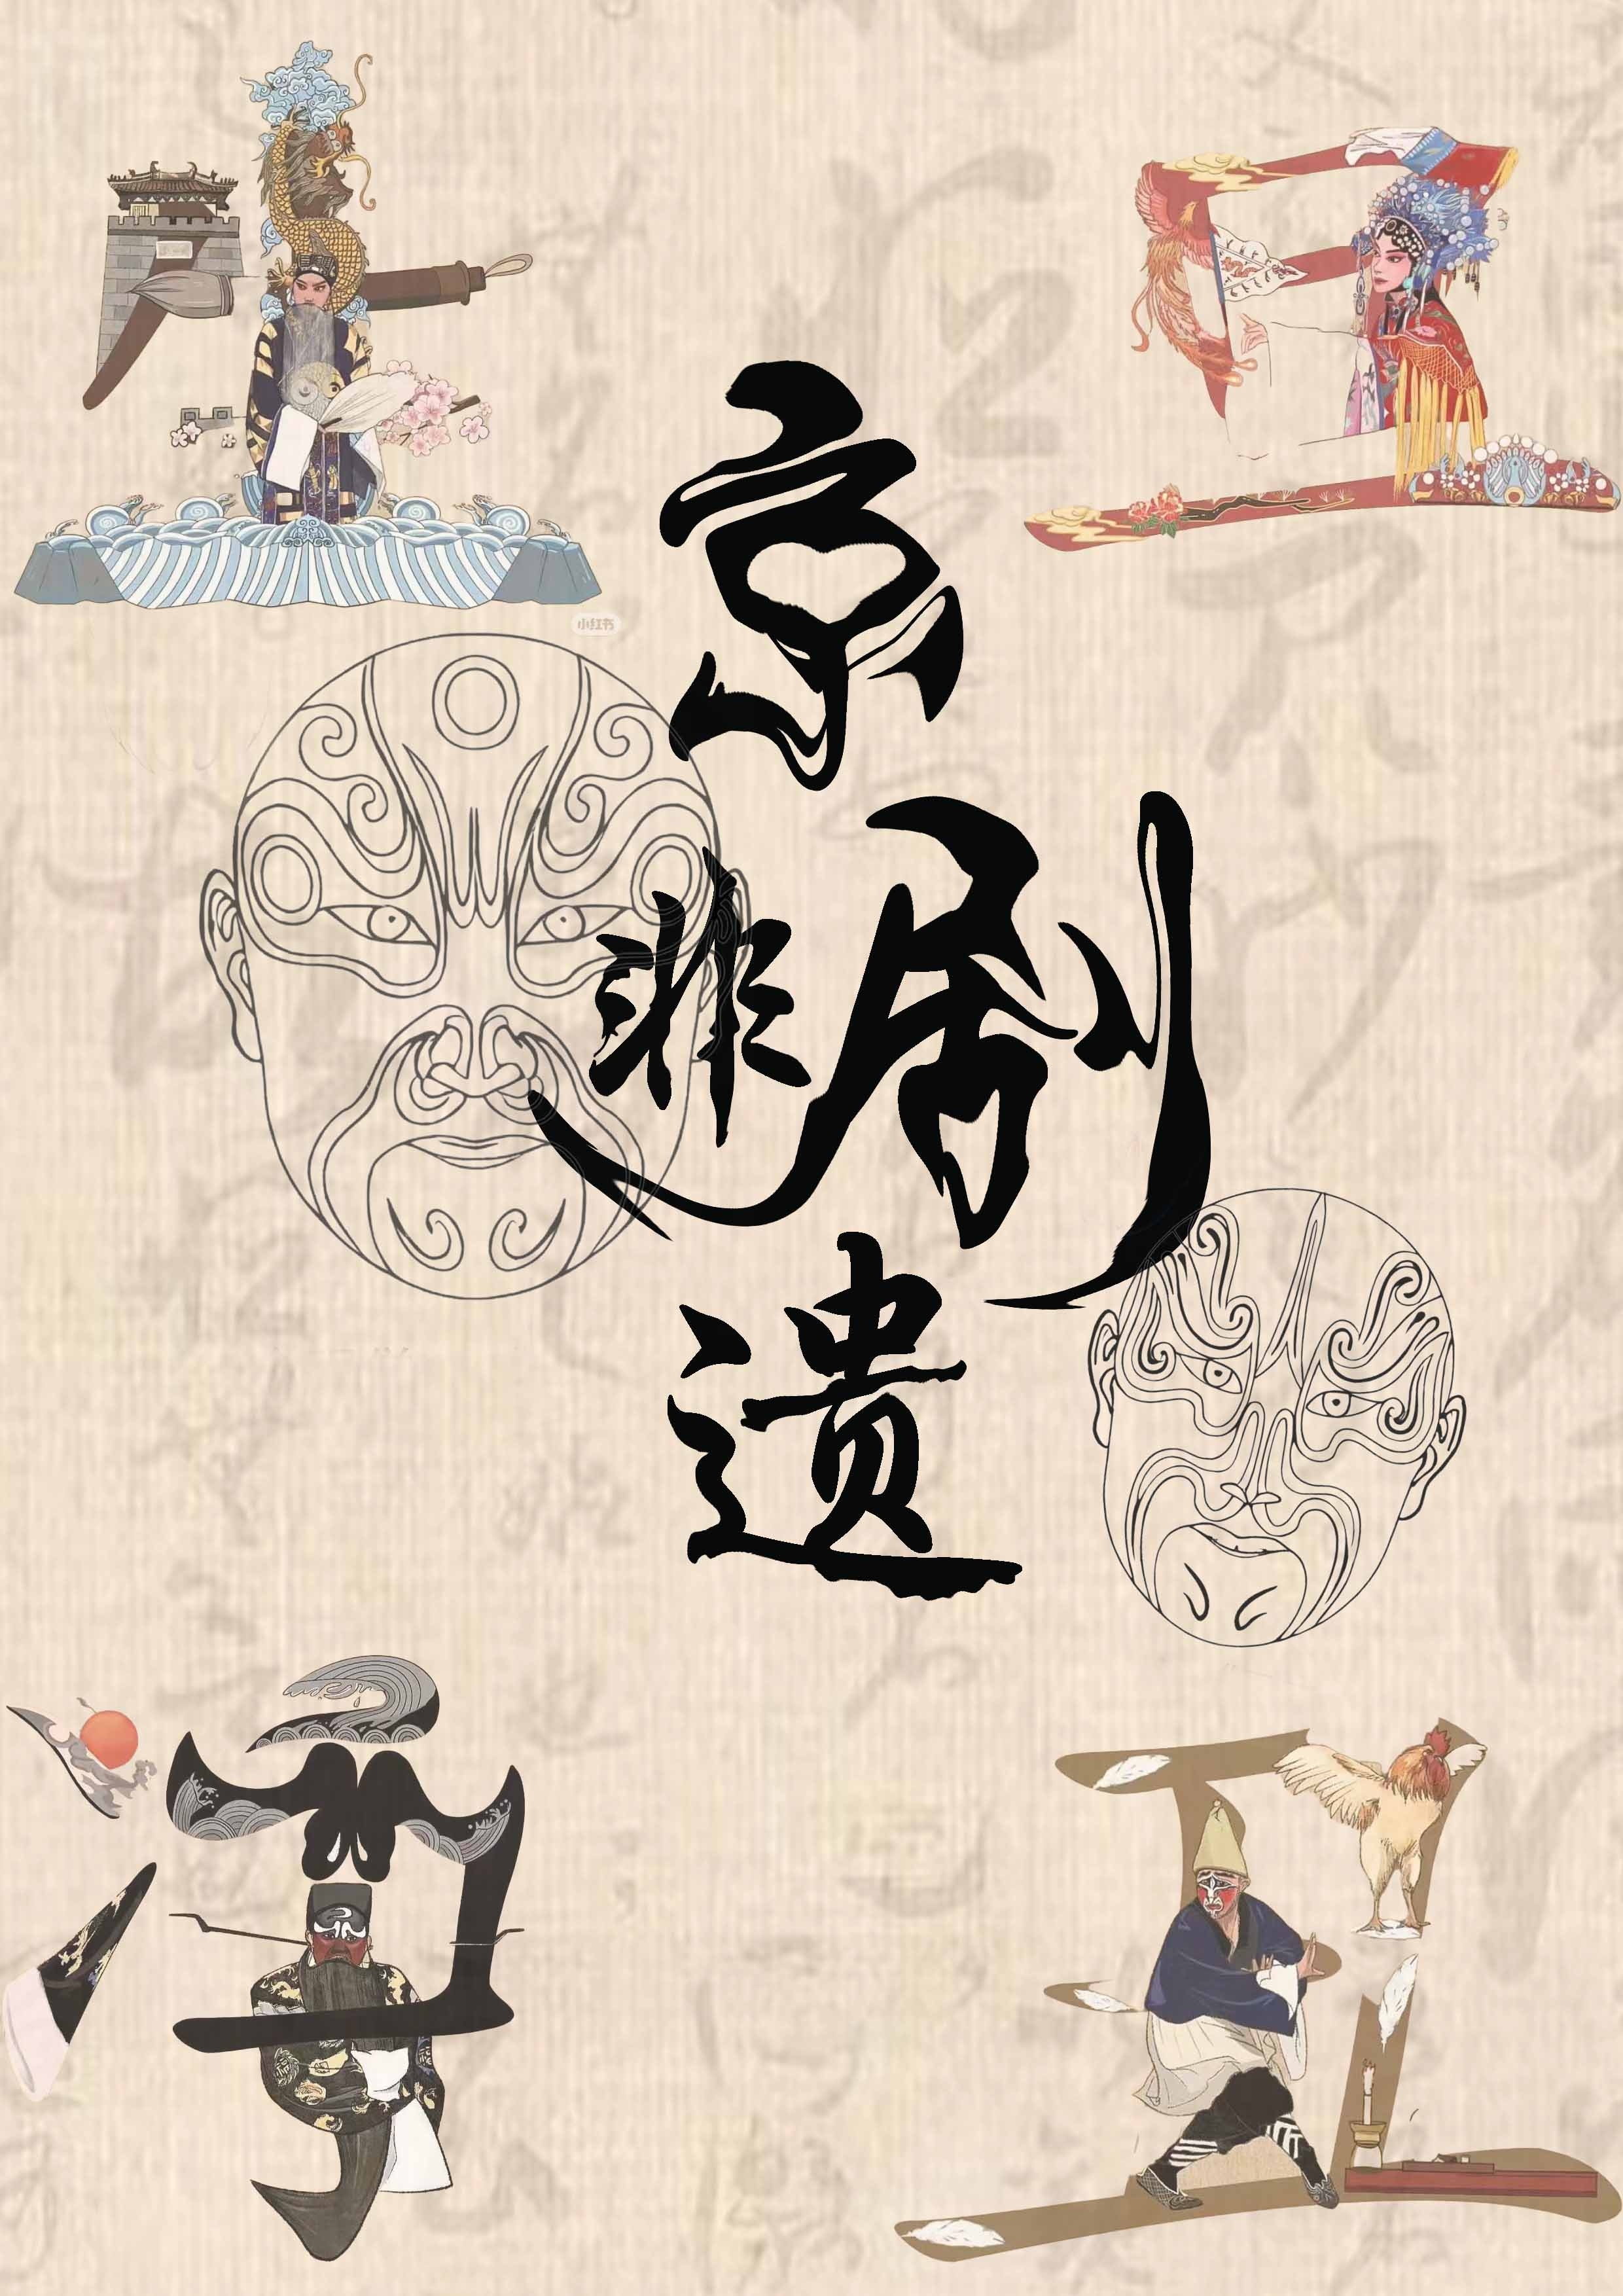 生
旦
京
剧
非
遗
净
丑
小红书